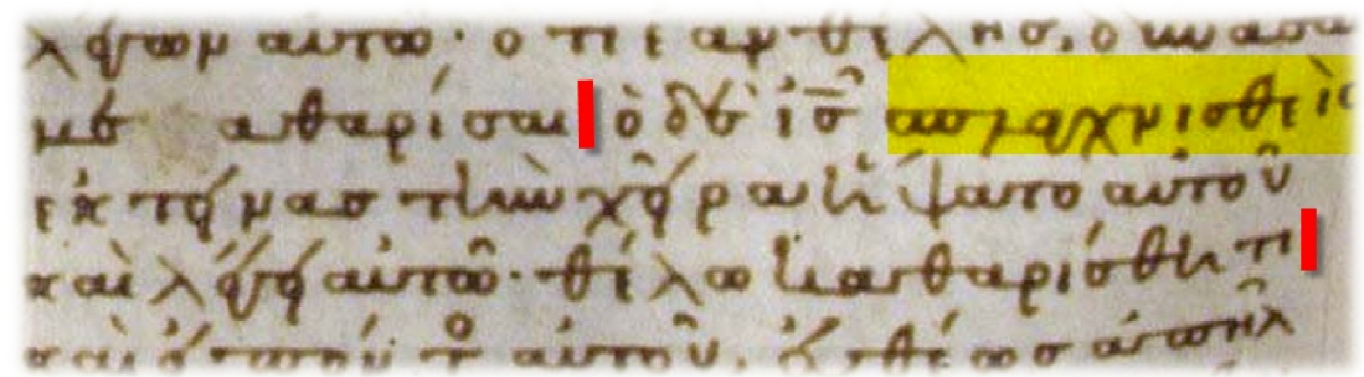 λέγων αὐτῶ· ὅτι ἐὰν θέλης, δύνασαι
με καθαρίσαι ὁ δὲ ἰς̄ σπλαγχνισθεὶς
ἐκτείνας τὴν χεῖρα ἥψατο αὐτοῦ
καὶ λέγει αὐτῶ· θέλω καθαρίσθητι
καὶ εἰπόντος αὐτοῦ, εὐθέως ἀπῆλ